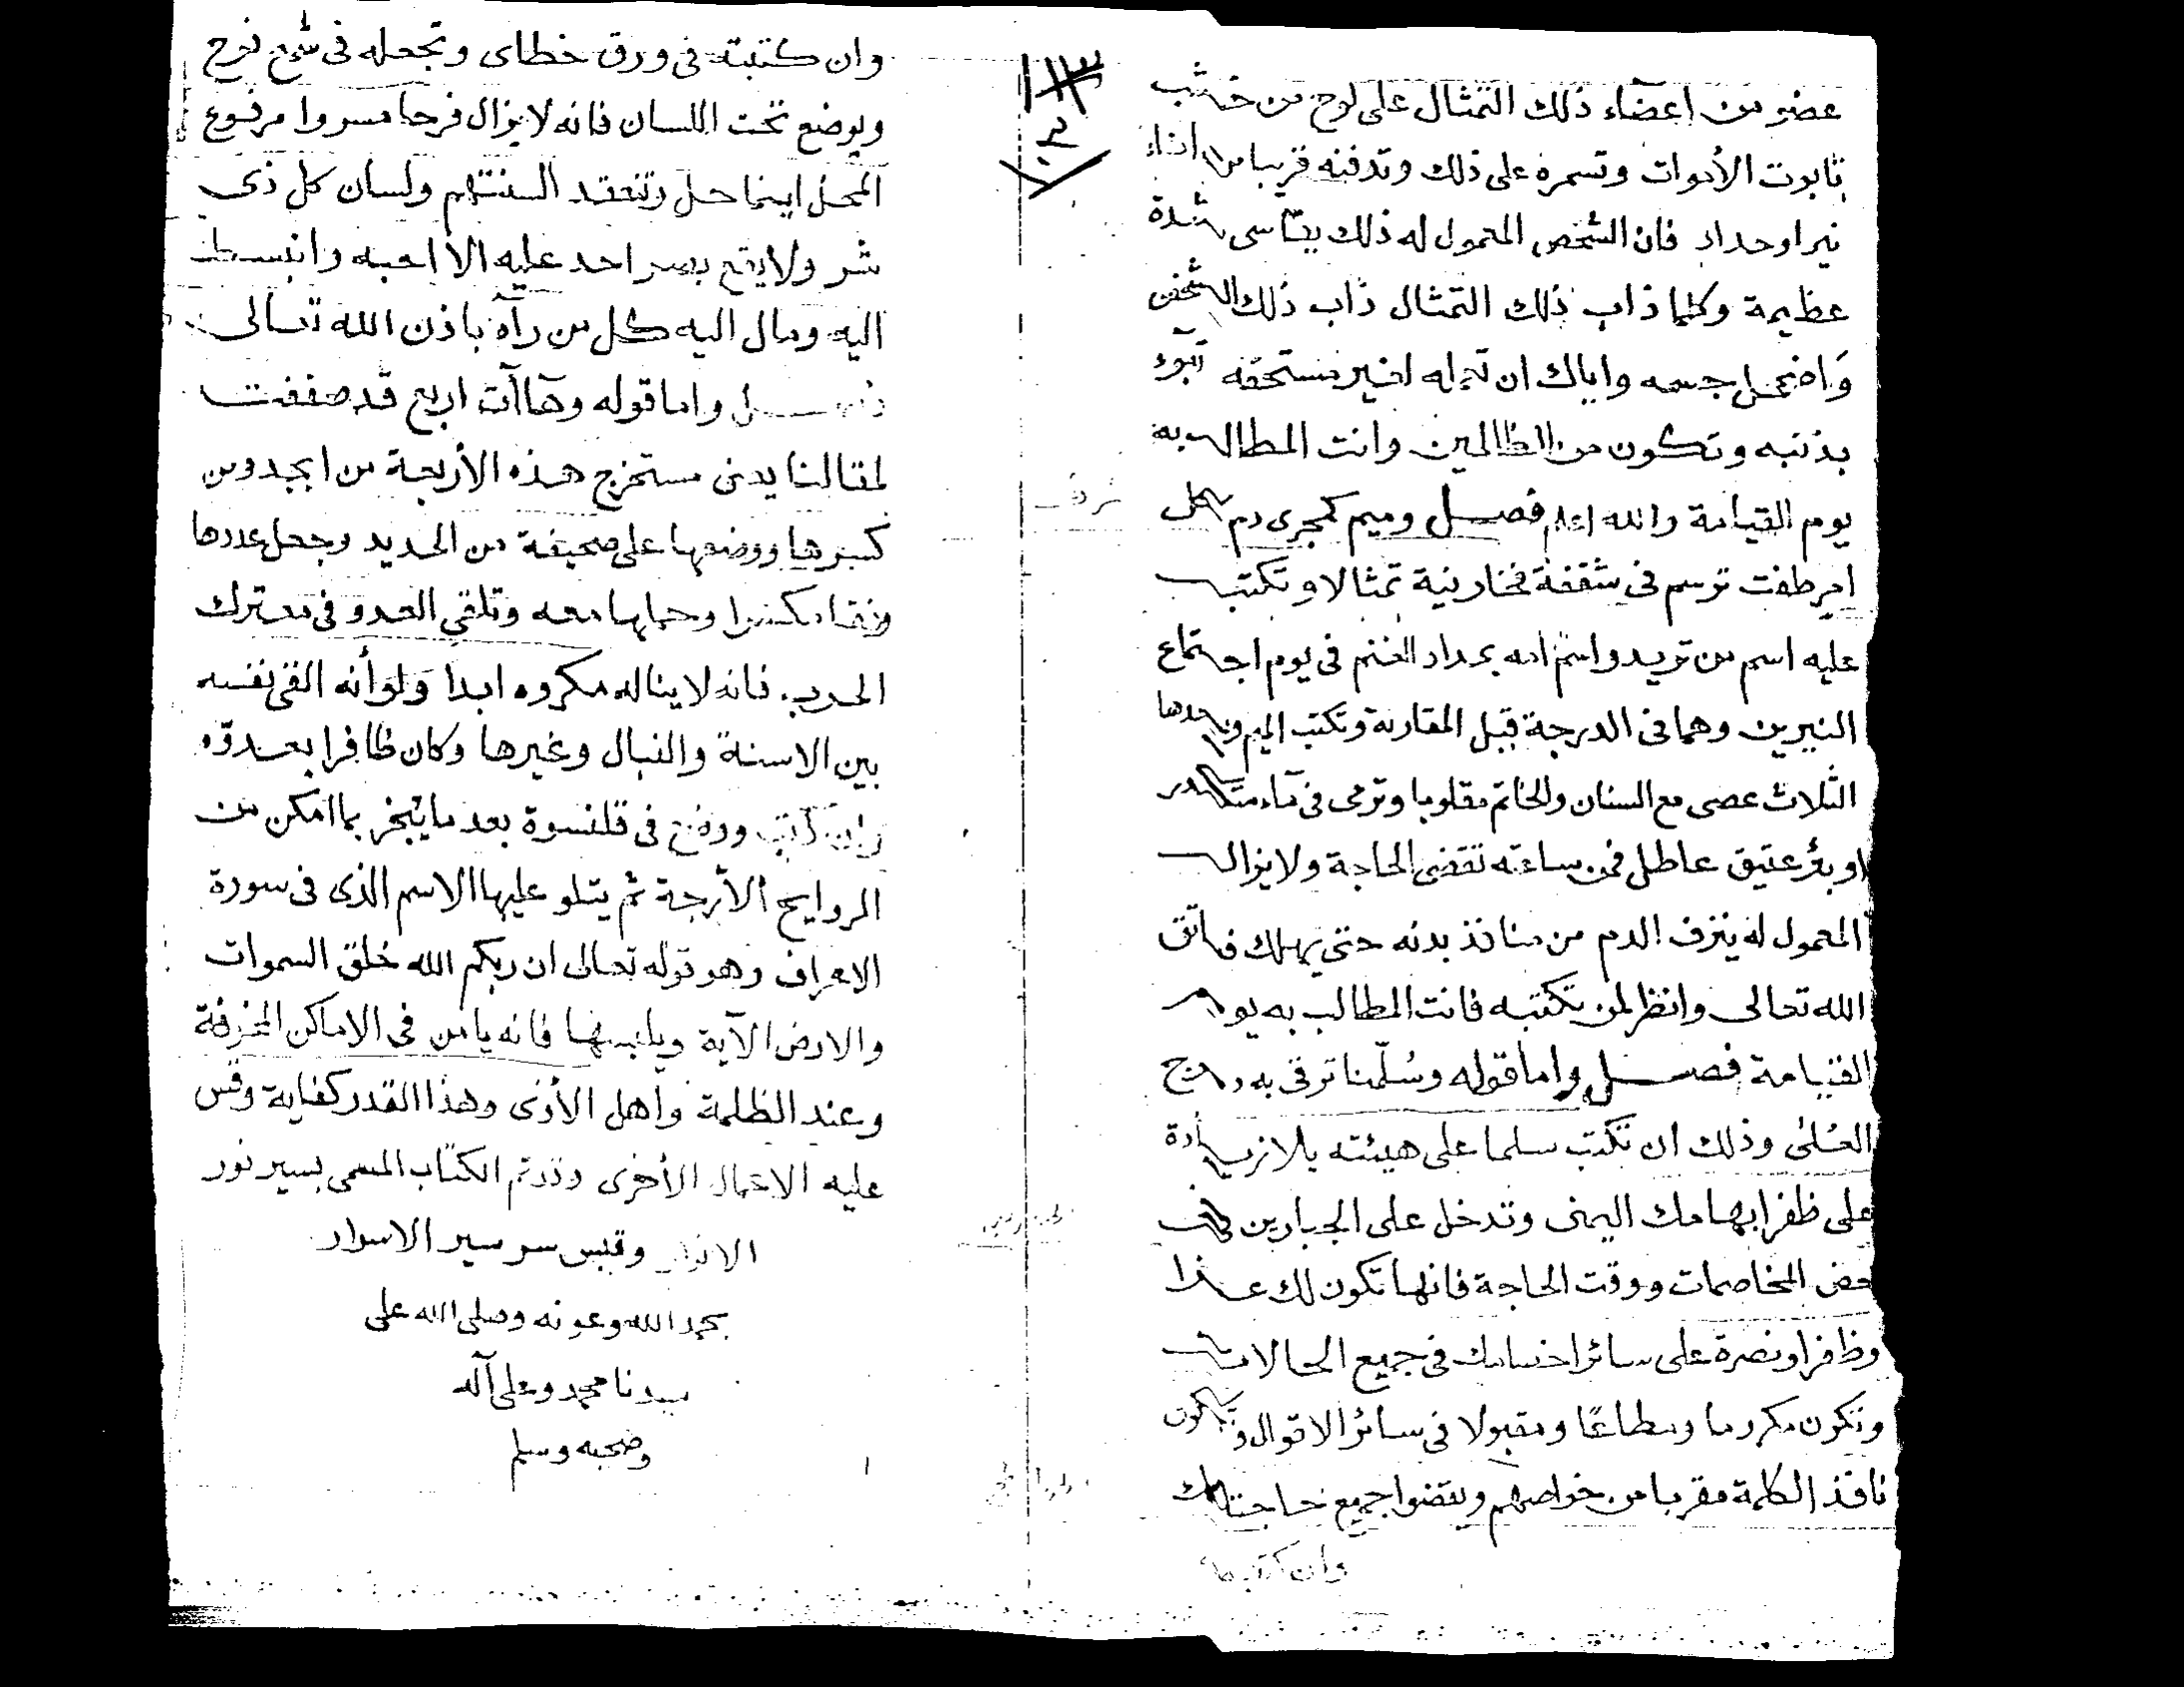 عضو من اعضاء ذلك التمثال على لوح من خشب
تابوت الأموات وتسمره على ذلك وتدفنه قريبا من اناء
نيراوحداد فان الشخص المعمول له ذلك يقاسى شدة
عظيمة وكلما ذاب ذلك التمثال ذاب ذلك الشخص
وَاضمحل جسمه واياك ان تعمله لغير مستحقه تبوء
بذنبه وتكون من الظالمين وانت المطالب به
يوم القيامة والله اعلم فصل وميم كمجرى دم لكل
امر طفت ترسم فى شقفة فخار نية تمثالا وتكتب
عليه اسم من تريد واسم امه بمداد الغنم فى يوم اجتماع
النيرين وهما فى الدرجة قبل المقارنة وتكتب الميم وبعدها
الثلاث عصى مع السنان والخاتم مقلوبا وترمى فى مآء متكدر
او بئر عتيق عاطل فمن ساعته تقضى الحاجة ولا يزال
المعمول له ينزف الدم من منافذ بدنه حتى يهلك فاتق
الله تعالى وانظر لمن تكتبه فانت المطالب به يوم
القيامة فصل واما قوله وسُلّمنا ترقى به درج
العُلىٰ وذلك ان تكتب سلما على هيئته بلا زيادة
على ظفر ابهامك اليمنى وتدخل على الجبارين فى
حض المخاصمات ووقت الحاجة فانها تكون لك عذا
وظافرا ونصرة على سائر اخصامك فى جميع الحالات
وتكون مكرما ومطاعًا ومقبولا فى سائر الاقوال وتكون
نافذ الكلمة مقربا من خواصهم ويقضوا جميع حاجتك
وان كتبته
وان كتبته فى ورق خطاى وتجعله فى شمع فرح
ويوضع تحت اللسان فانه لا يزال فرحا مسروا مرفوع
المحل اينما حل وتنعقد السنتهم ولسان كل ذى
شر ولا يقع بصر احد عليه الا احبه وانبسط
اليه ومال اليه كل من رآه باذن الله تعالى
فصل واما قوله وهاآت اربع قد صففت
لمقالنا يعنى مستخرج هذه الأربعة من ابجد ومن
كسرها ووضعها على صحيفة من الحديد وجعل عددها
وفقا مكسرا وحملها معه وتلقى العدو فى معترك
الحرب فانه لا يناله مكروه ابدا وَلوأنه القى نفسه
بين الاسنة والنبال وغيرها وكان ظافرا بعدوّه
وان كتب ووضع فى قلنسوة بعد ما يبخر بما امكن من
الروايح الأرجة ثم يتلو عليها الاسم الذى فى سورة
الاعراف وهو قوله تعالى ان ربكم الله خلق السموات
والارض الآية ويلبسها فانه يامن فى الاماكن المخوفة
وعند الظلمة واهل الأذى وهذا القدر كفاية وقس
عليه الاعمال الأخرى وقد تم الكتاب المسمى بسير نور
الانوار وقبس سر سير الاسرار
بحمد الله وعونه وصلى الله على
سيدنا محمد وعلى آله
وصحبه وسلم